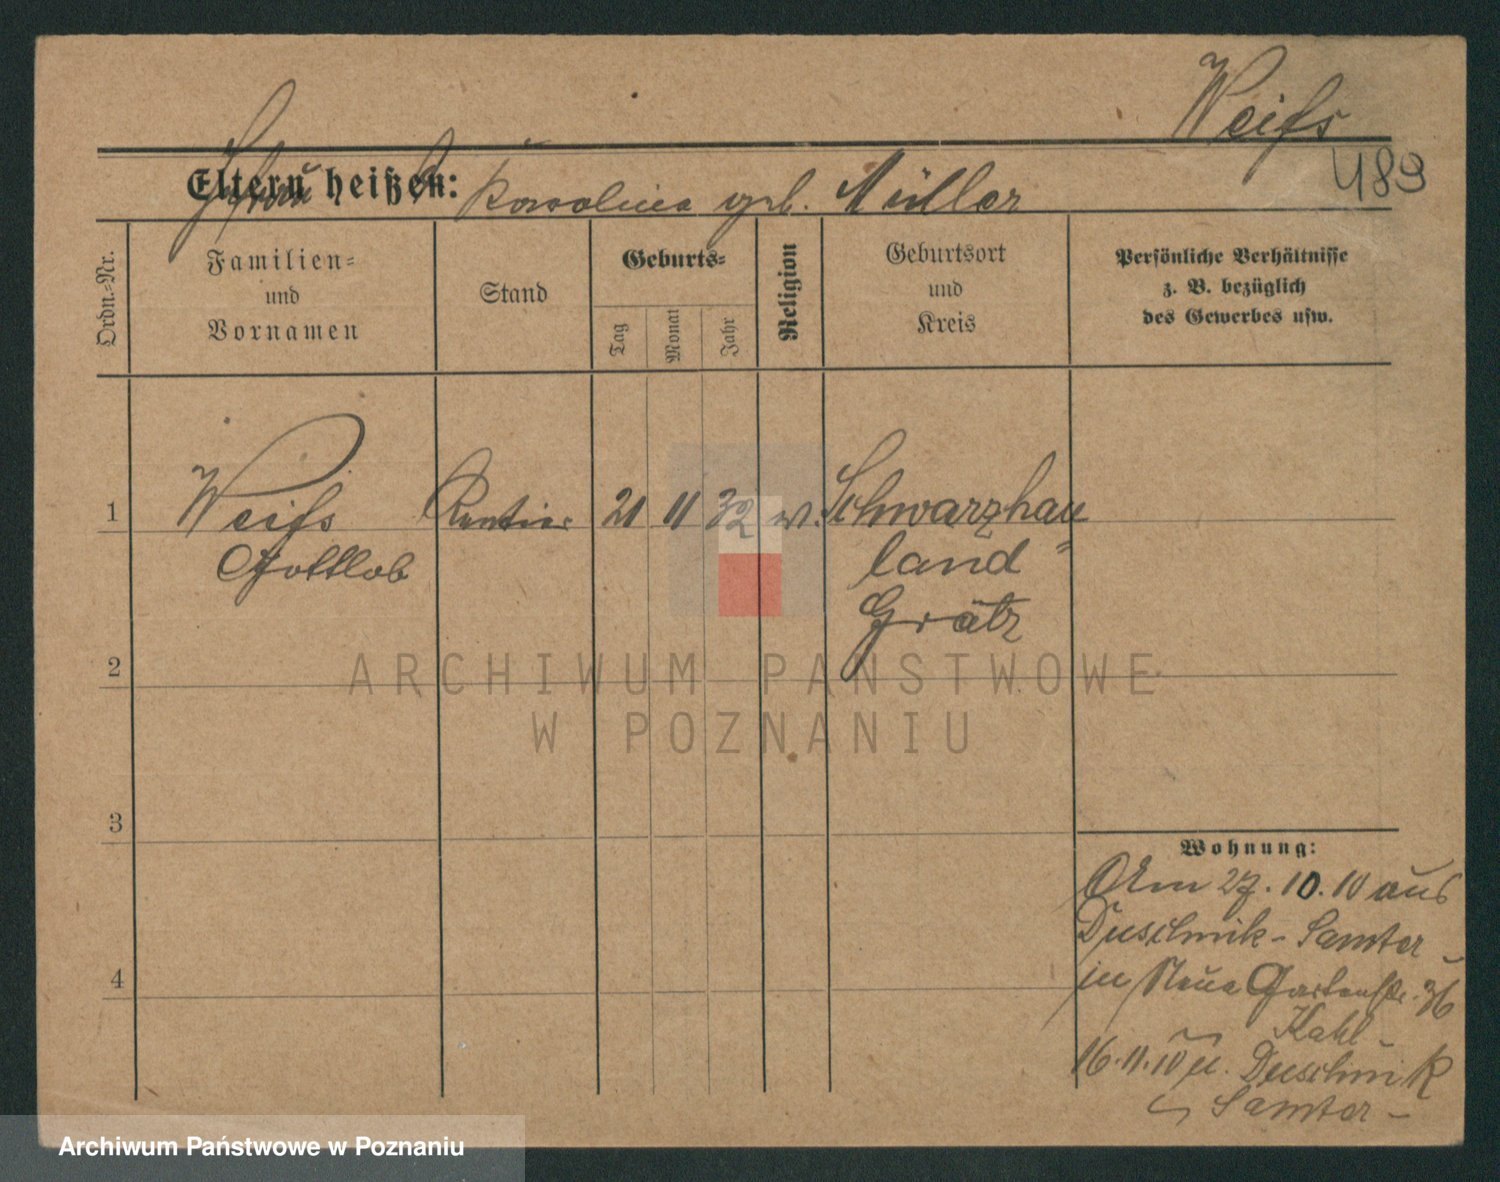 Weiſs
489
Eltern heißen: Karolina geb. Müller
Ordn.-Nr.
Familien-
und
Vornamen
Stand
Geburts-
Tag
Monat
Jahr
Religion
Geburtsort
und
Kreis
Persönliche Verhältnisse
z. B. bezüglich
des Gewerbes usw.
1 Weiſs Rentier 21 11 32 Schwarzhau
Gottlob
land
Grätz
2
3
4
Wohnung:
Am 27.10.10 aus
Duschnik - Samter -
in Neue Gartenstr. 36
Kahl -
16.11.10 n. Duschnik
Samter -
ARCHIWUM PAŃSTWOWE
W POZNANIU
Archiwum Państwowe w Poznaniu